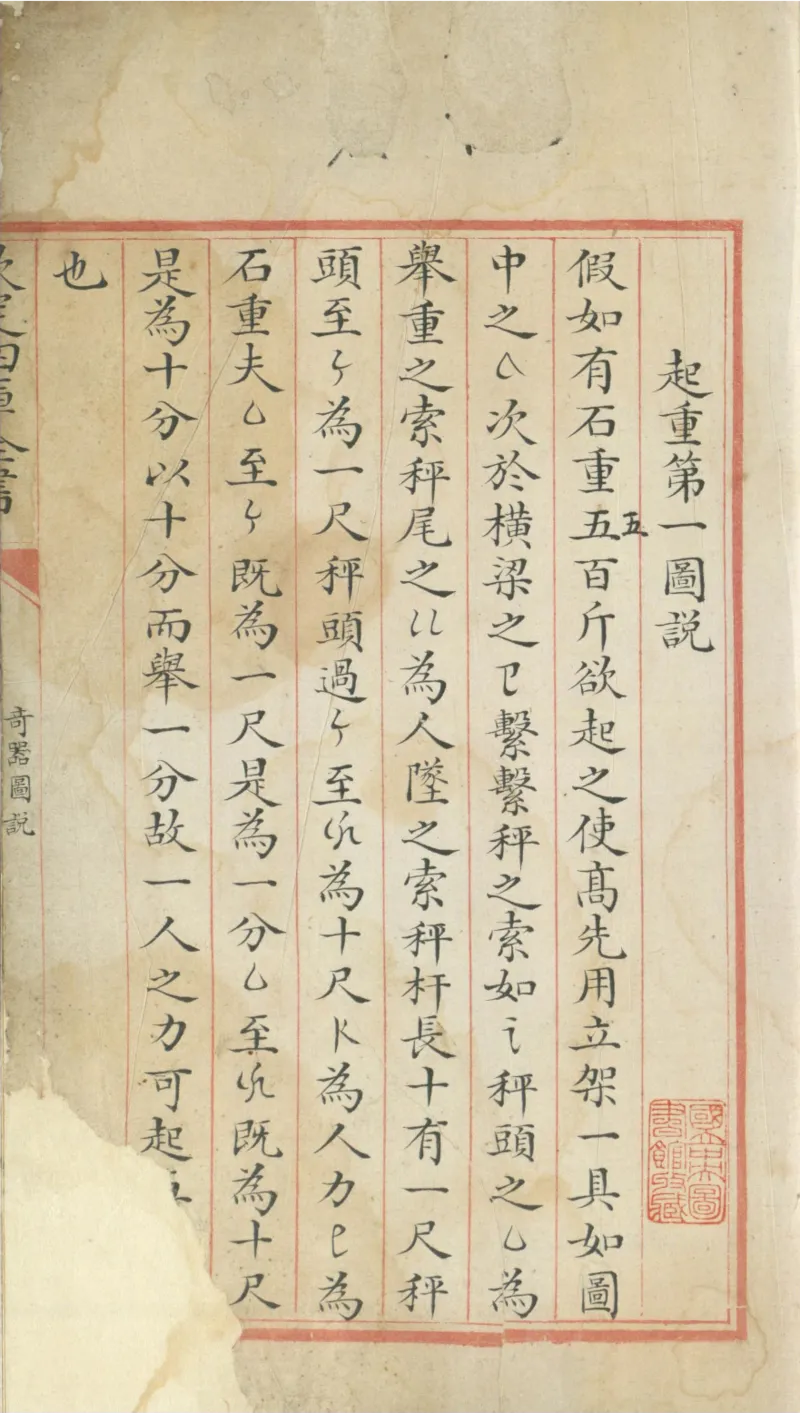 起重第一圖説
假如有石重五百斤欲起之使髙先用立架一具如圖
五
中之
次於横梁之
繫繫秤之索如
秤頭之
為
舉重之索秤尾之
為人墜之索秤杆長十有一尺秤
頭至
為一尺秤頭過
至
為十尺
為人力
為
石重夫
至
既為一尺是為一分
至
既為十尺
是為十分以十分而舉一分故一人之力可起
也
欽定四庫全書
奇器圖説
國立中央圖書館收藏